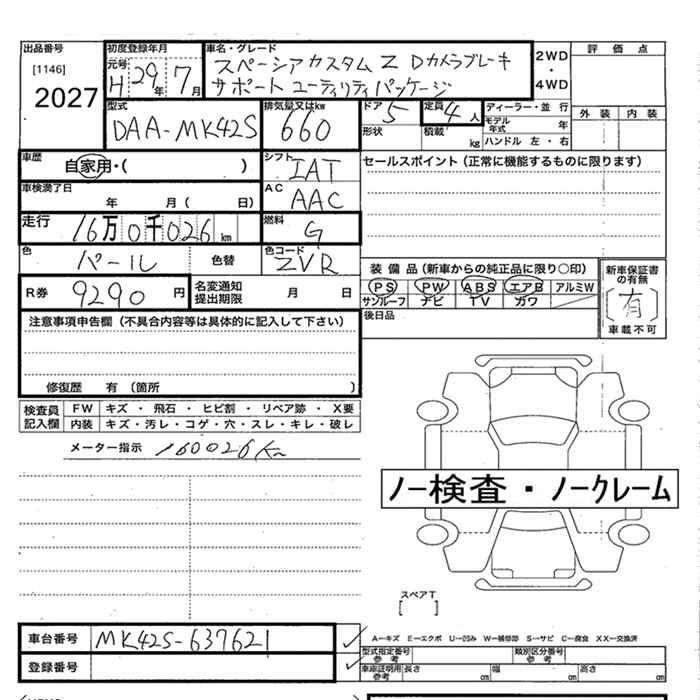 出品番号
[1146]
2027
初度登録年月
元号
H 29年 7月
車名・グレード
スペーシアカスタム Z Dカメラブレーキ
サポート ユーティリティパッケージ
2WD
・
4WD
評価点
外装 内装
型式
DAA-MK42S
排気量又はkw
660
ドア 5
形状
定員 4人
積載 kg
ディーラー・並行
モデル年式 年
ハンドル 左・右
車歴
自家用・( )
シフト
IAT
セールスポイント(正常に機能するものに限ります)
車検満了日
年 月( 日)
AC
AAC
走行
16万0千026km
燃料
G
色
パール
色替
色コード
ZVR
装備品(新車からの純正品に限り○印)
PS PW ABS エアB アルミW
サンルーフ ナビ TV カワ
新車保証書
の有無
[有]
車載不可
R券 9290円
名変通知
提出期限
月 日
後日品
注意事項申告欄(不具合内容等は具体的に記入して下さい)
修復歴 有(箇所 )
検査員
記入欄
FW キズ・飛石・ヒビ割・リペア跡・X要
内装 キズ・汚レ・コゲ・穴・スレ・キレ・破レ
メーター指示 160026Km
ノー検査・ノークレーム
スペアT
[ ]
車台番号 MK42S-637621
登録番号
A-キズ E-エクボ U-凹み W-補修跡 S-サビ C-腐食 XX-交換済
型式指定番号
参考
類別区分番号
参考
車庫証明用
参考
長さ cm
幅 cm
高さ cm